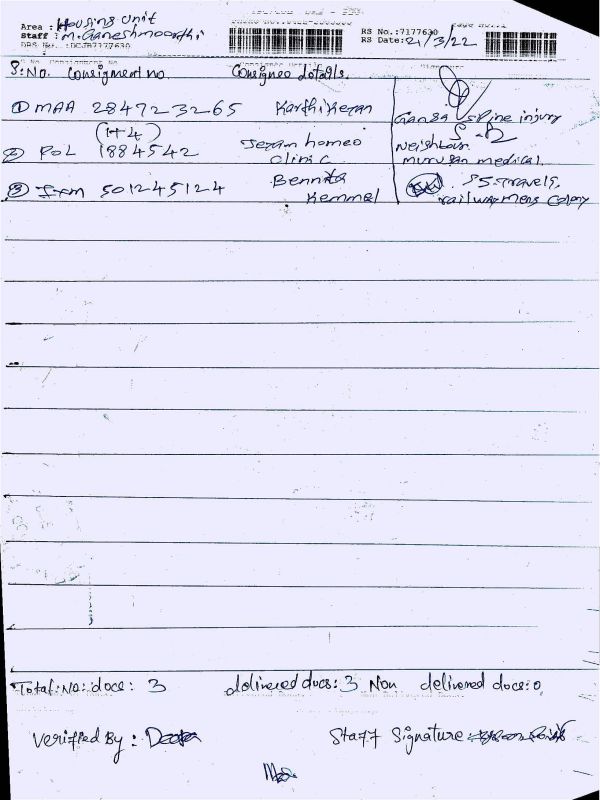 Area : Housing Unit
Staff : M. Ganeshmoorthi
DRS No. :DCJB7177630
RS No.:7177630
RS Date: 21/3/22
S:No. Consignment no. Consignee details.
① MAA 2847223265 Karthikeyan Ganga spine injury
(1+4)
② POL 1884542 Jeyam homeo clinic Neighbour murugan medical
③ Ixm 501245124 Bennita Kemmel SS. Travels. railwaymens Colony
Total: No: docs: 3 delivered docs: 3 Non delivered docs: 0
Verified By : Deepa Staff Signature :